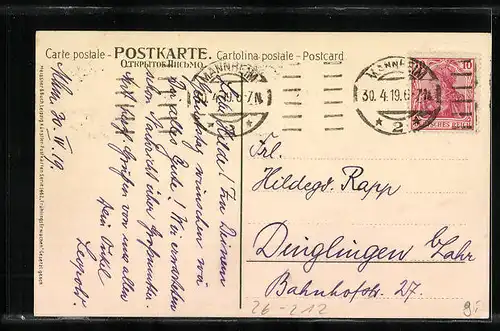 Carte postale - POSTKARTE. Cartolina postale - Postcard
ОТКРЫТОЕ ПИСЬМО
MANNHEIM
19.6-7N.
MANNHEIM
30.4.19.6-7N.
* 2. *
10
DEUTSCHES REICH
Mhm. 30. IV. 19.
Liebe Hilde! Zu Deinem
Geburtstag wünschen wir
Dir alles Gute! Wir erwarten
schon Nachricht über Großmutter.
Mit Grüßen von uns allen
Dein Onkel
Leopold.
Frl.
Hildeg. Rapp
Dinglingen b/Lahr
Bahnhofstr. 27.
26-212